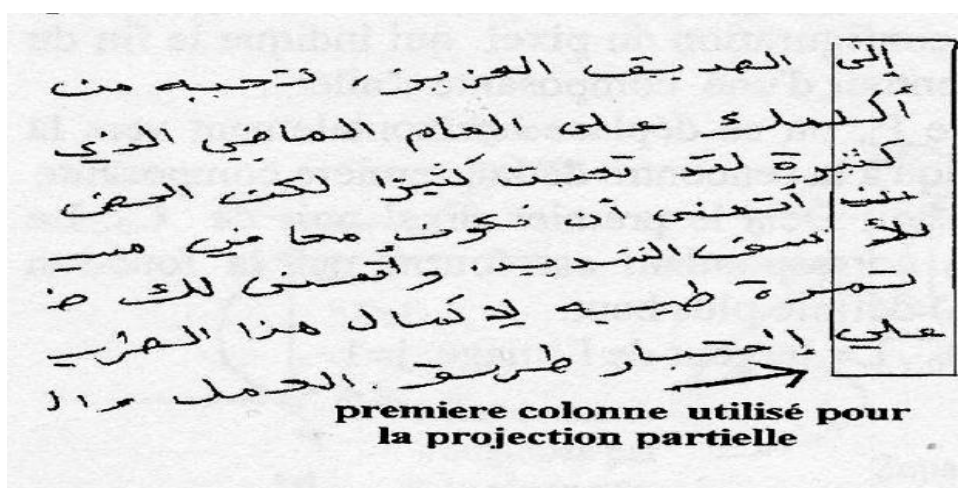 إلى الصديق العزيز، تحيه من
أكتبلك على العام الماضي الذي
كثيرة لقد تعبت كثيرا لكن الحض
كنت أتمنى أن نكون معا من
للأسف الشديد. وأتمنى لك
ثمرة طيبه لا كمال هذا الضرب
على إختيار طريق العمل وال
premiere colonne utilisé pour
la projection partielle